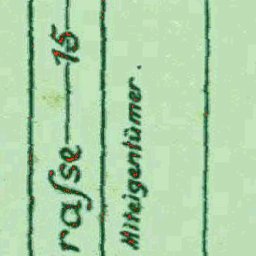 raſse 15
Miteigentümer.